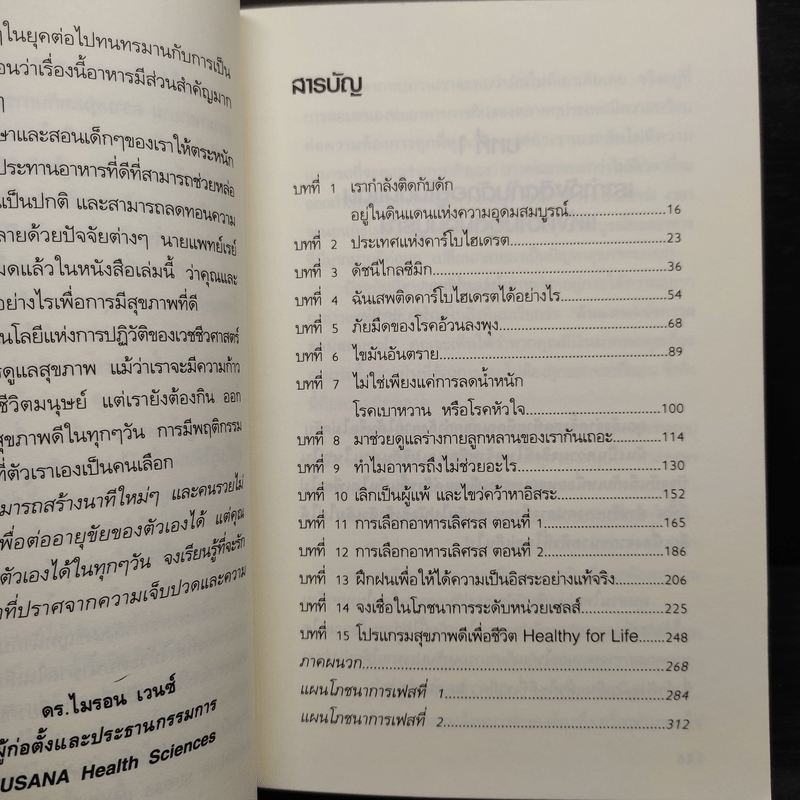 ๆในยุคต่อไปทนทรมานกับการเป็น
อนว่าเรื่องนี้อาหารมีส่วนสำคัญมาก
ๆ
ษาและสอนเด็กๆของเราให้ตระหนัก
ประทานอาหารที่ดีที่สามารถช่วยหล่อ
เป็นปกติ และสามารถลดทอนความ
ลายด้วยปัจจัยต่างๆ นายแพทย์เรย์
มดแล้วในหนังสือเล่มนี้ ว่าคุณและ
อย่างไรเพื่อการมีสุขภาพที่ดี
นโลยีแห่งการปฏิวัติของเวชชีวศาสตร์
รดูแลสุขภาพ แม้ว่าเราจะมีความก้าว
ชีวิตมนุษย์ แต่เรายังต้องกิน ออก
สุขภาพดีในทุกๆวัน การมีพฤติกรรม
ที่ตัวเราเองเป็นคนเลือก
ามารถสร้างนาทีใหม่ๆ และคนรวยไม่
เพื่อต่ออายุขัยของตัวเองได้ แต่คุณ
ตัวเองได้ในทุกๆวัน จงเรียนรู้ที่จะรัก
าที่ปราศจากความเจ็บปวดและความ
ดร.ไมรอน เวนซ์
ผู้ก่อตั้งและประธานกรรมการ
USANA Health Sciences
สารบัญ
บทที่ 1 เรากำลังติดกับดัก
อยู่ในดินแดนแห่งความอุดมสมบูรณ์....................16
บทที่ 2 ประเทศแห่งคาร์โบไฮเดรต....................23
บทที่ 3 ดัชนีไกลซีมิก....................36
บทที่ 4 ฉันเสพติดคาร์โบไฮเดรตได้อย่างไร....................54
บทที่ 5 ภัยมืดของโรคอ้วนลงพุง....................68
บทที่ 6 ไขมันอันตราย....................89
บทที่ 7 ไม่ใช่เพียงแค่การลดน้ำหนัก
โรคเบาหวาน หรือโรคหัวใจ....................100
บทที่ 8 มาช่วยดูแลร่างกายลูกหลานของเรากันเถอะ..........114
บทที่ 9 ทำไมอาหารถึงไม่ช่วยอะไร....................130
บทที่ 10 เลิกเป็นผู้แพ้ และไขว่คว้าหาอิสระ....................152
บทที่ 11 การเลือกอาหารเลิศรส ตอนที่ 1....................165
บทที่ 12 การเลือกอาหารเลิศรส ตอนที่ 2....................186
บทที่ 13 ฝึกฝนเพื่อให้ได้ความเป็นอิสระอย่างแท้จริง..........206
บทที่ 14 จงเชื่อในโภชนาการระดับหน่วยเซลส์..........225
บทที่ 15 โปรแกรมสุขภาพดีเพื่อชีวิต Healthy for Life......248
ภาคผนวก....................268
แผนโภชนาการเฟสที่ 1....................284
แผนโภชนาการเฟสที่ 2....................312